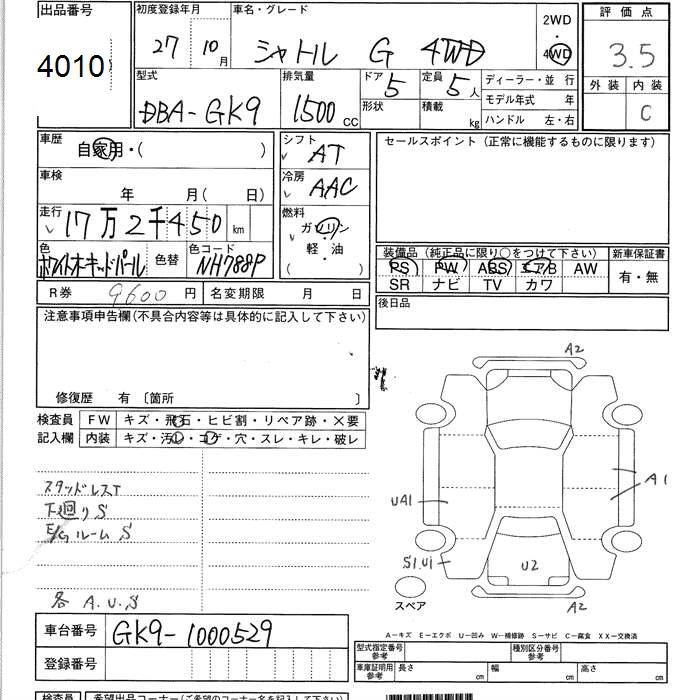 出品番号
4010
初度登録年月
27年 10月
車名・グレード
シャトル G 4WD
2WD
4WD
評価点
3.5
外装 内装
C
型式
DBA-GK9
排気量
1500 CC
ドア 5
形状
定員 5人
積載 kg
ディーラー・並行
モデル年式 年
ハンドル 左・右
車歴
自家用・( )
車検
年 月( 日)
走行
17万2千450 km
色
ホワイトオーキッドパール
色替
色コード
NH788P
シフト
AT
冷房
AAC
燃料
ガソリン
軽・油
( )
セールスポイント(正常に機能するものに限ります)
装備品(純正品に限り○をつけて下さい)
PS PW ABS エアB AW
SR ナビ TV カワ
新車保証書
有・無
R券 9600円
名変期限 月 日
後日品
注意事項申告欄(不具合内容等は具体的に記入して下さい)
修復歴 有〔箇所 〕
検査員
記入欄
FW キズ・飛石・ヒビ割・リペア跡・×要
内装 キズ・汚レ・コゲ・穴・スレ・キレ・破レ
スタッドレスT
下廻りS
E/GルームS
各 A.U.S
A2
UA1
A1
S1.U1
U2
A2
スペア
A−キズ E−エクボ U−凹み W−補修跡 S−サビ C−腐食 XX−交換済
車台番号
GK9-1000529
登録番号
型式指定番号
参考
種別区分番号
参考
車庫証明用
参考
長さ cm
幅 cm
高さ cm
検査員
希望出品コーナー(ご希望のコーナー名を記入して下さい)